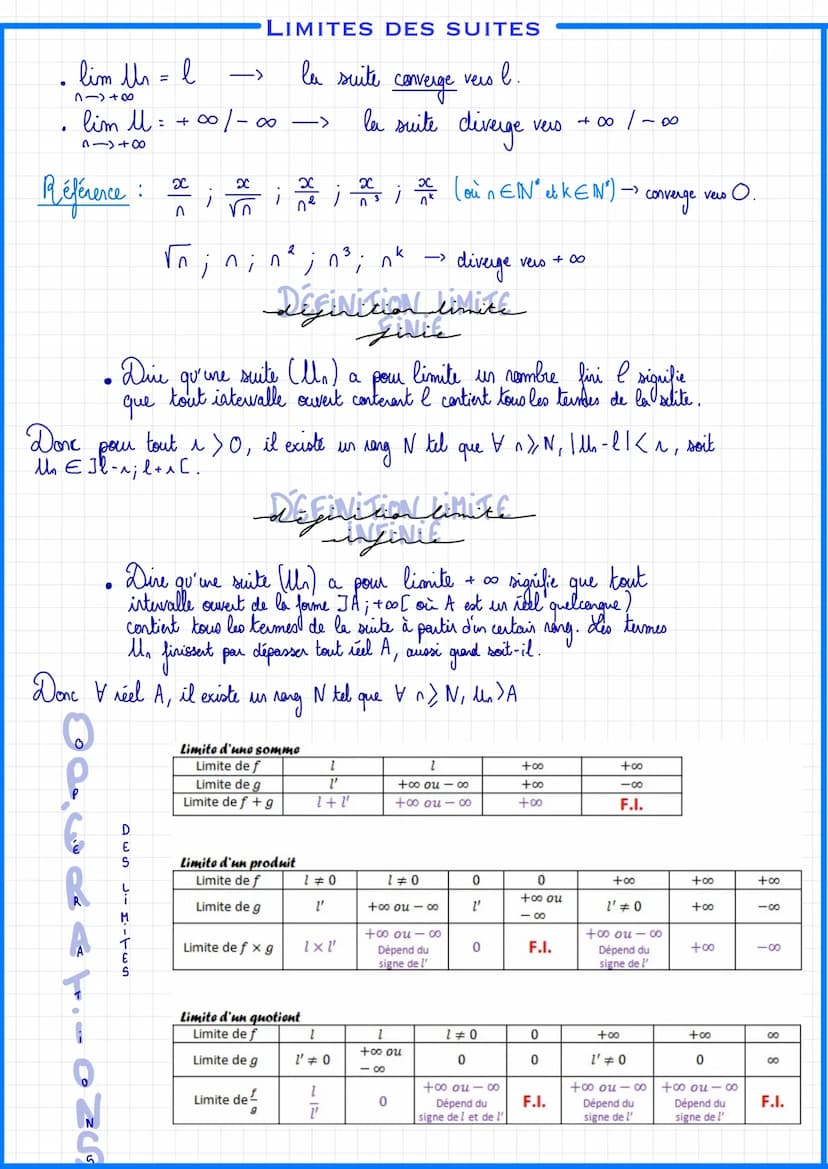 LIMITES DES SUITES
. lim Un = l —> la suite converge vers l.
n—>+∞
. lim U = +∞/-∞ —> la suite diverge vers +∞ / -∞
n—>+∞
Référence : x/n ; x/√n ; x/n² ; x/n³ ; x/nᵏ (où n∈N* et k∈N*) —> converge vers 0.
√n ; n ; n² ; n³ ; nᵏ —> diverge vers +∞
DÉFINITION LIMITE
définition limite
FINIE
finie
• Dire qu'une suite (Un) a pour limite un nombre fini l signifie
que tout intervalle ouvert contenant l contient tous les termes de la suite.
Donc pour tout r>0, il existe un rang N tel que ∀ n⩾N, |Un-l|<r, soit
Un ∈ ]l-r; l+r[.
DÉFINITION LIMITE
définition limite
INFINIE
infinie
• Dire qu'une suite (Un) a pour limite +∞ signifie que tout
intervalle ouvert de la forme ]A;+∞[ où A est un réel quelconque)
contient tous les termes de la suite à partir d'un certain rang. Les termes
Un finissent par dépasser tout réel A, aussi grand soit-il.
Donc ∀ réel A, il existe un rang N tel que ∀ n⩾N, Un>A
OPÉRATIONS
OPÉRATIONS
DES LIMITES
Limite d'une somme
Limite de f l l +∞ +∞
Limite de g l' +∞ ou −∞ +∞ −∞
Limite de f + g l + l' +∞ ou −∞ +∞ F.I.
Limite d'un produit
Limite de f l ≠ 0 l ≠ 0 0 0 +∞ +∞ +∞
Limite de g l' +∞ ou −∞ l' +∞ ou −∞ l' ≠ 0 +∞ −∞
Limite de f × g l × l' +∞ ou −∞ Dépend du signe de l' 0 F.I. +∞ ou −∞ Dépend du signe de l' +∞ −∞
Limite d'un quotient
Limite de f l l l ≠ 0 0 +∞ +∞ ∞
Limite de g l' ≠ 0 +∞ ou −∞ 0 0 l' ≠ 0 0 ∞
Limite de f/g l/l' 0 +∞ ou −∞ Dépend du signe de l et de l' F.I. +∞ ou −∞ Dépend du signe de l' +∞ ou −∞ Dépend du signe de l' F.I.